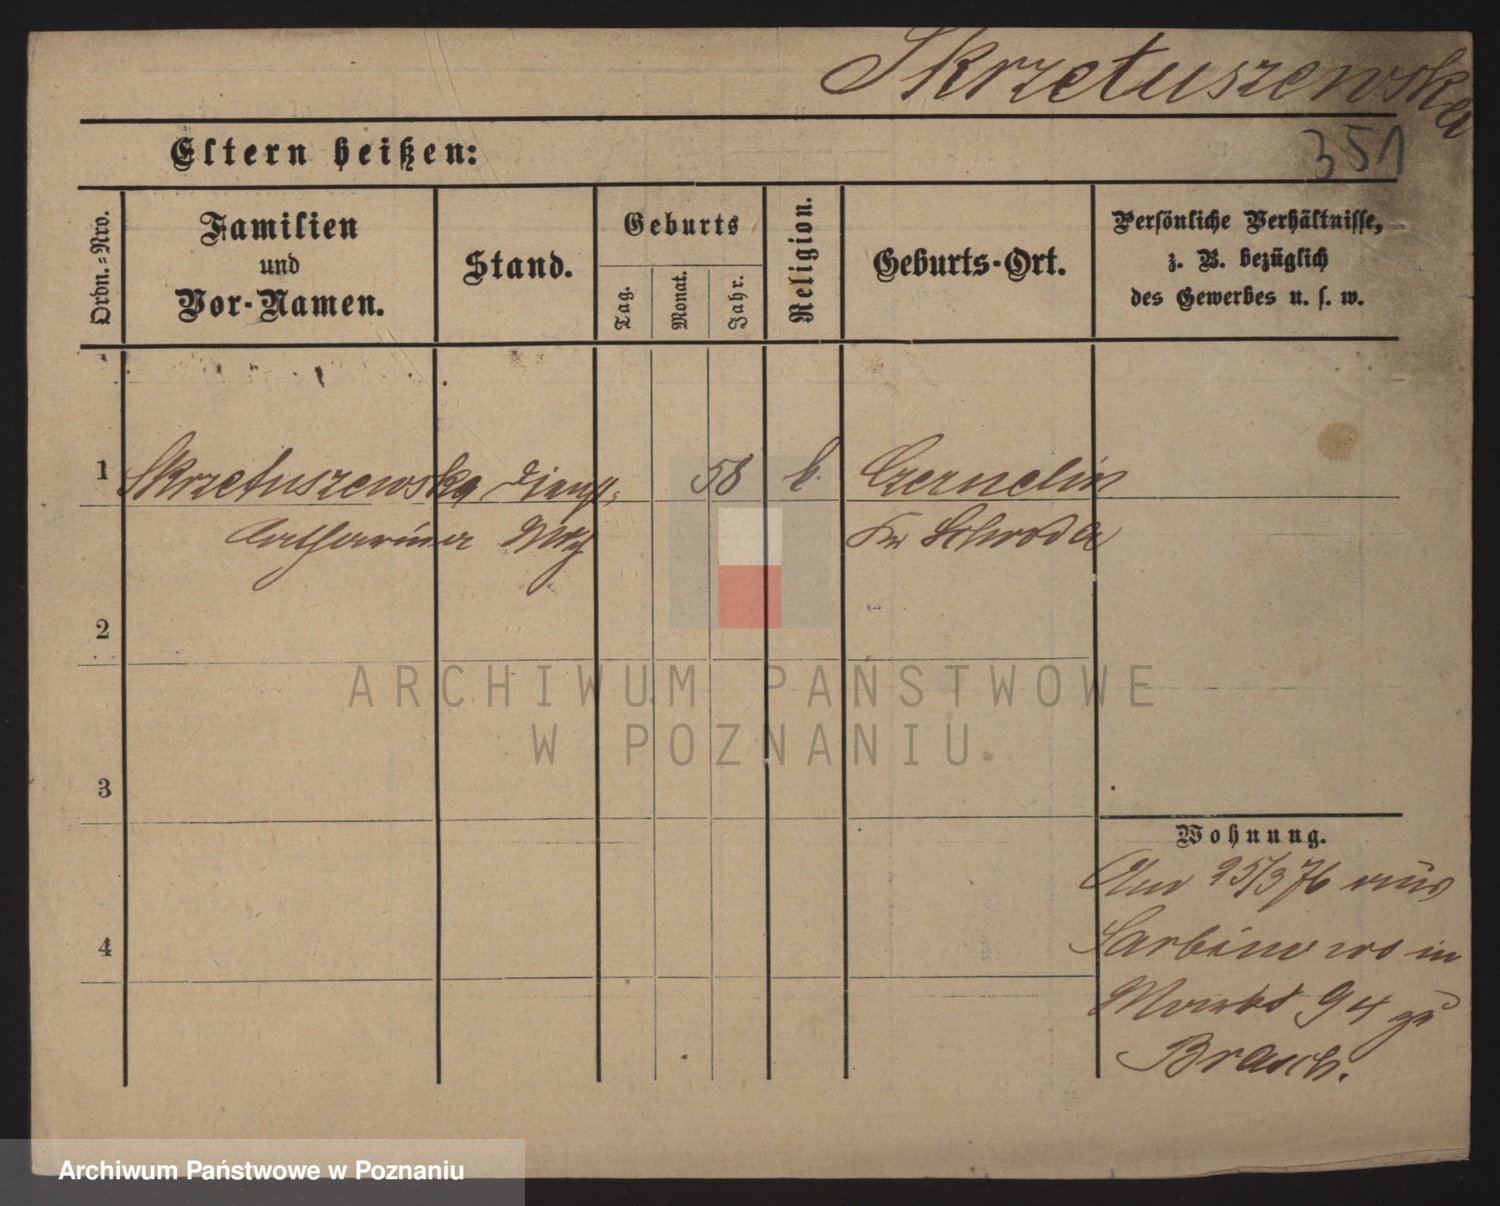 Skrzetuszewska
351
Eltern heißen:
Ordn.-Nro.
Familien
und
Vor-Namen.
Stand.
Geburts
Tag.
Monat.
Jahr.
Religion.
Geburts-Ort.
Persönliche Verhältnisse,
z. B. bezüglich
des Gewerbes u. s. w.
1 Skrzetuszewska Dienst- 58 k. Czernelin
Catharina Mg Kr Schroda
2
3
4
Wohnung.
Am 25/3 76 aus
Sarbinowo in
Markt 94 zu
Brasch.
ARCHIWUM PAŃSTWOWE
W POZNANIU
Archiwum Państwowe w Poznaniu